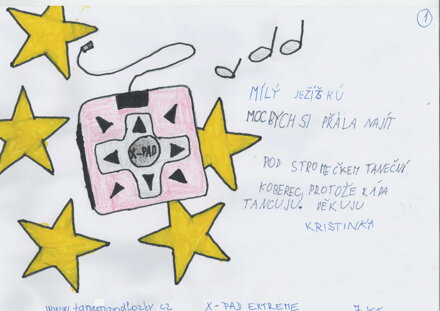 1
MILÝ JEŽÍŠKU
MOC BYCH SI PŘÁLA NAJÍT
X-PAD
POD STROMEČKEM TANEČNÍ
KOBEREC, PROTOŽE RÁDA
TANCUJU. DĚKUJU
KRISTINKA
X-PAD EXTREME